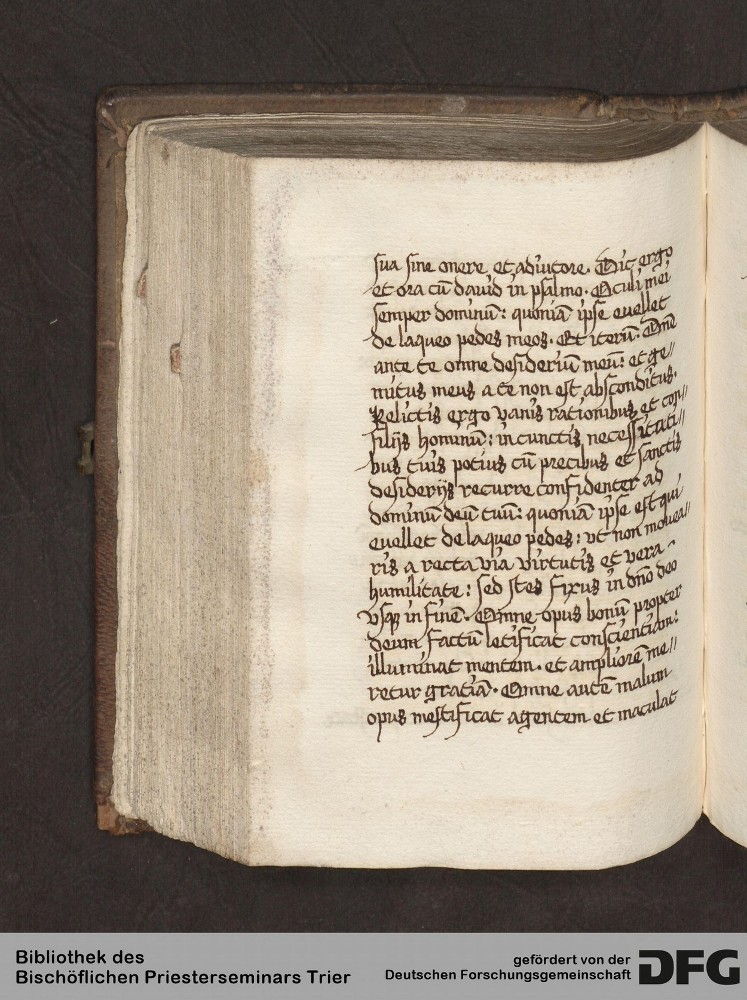 sua sine onere et adiutore. Dic ergo
et ora cū dauid in psalmo. Oculi mei
semper dominū: quoniā ipse euellet
de laqueo pedes meos. Et iterū. Dnē
ante te omne desideriū meū: et ge//
mitus meus a te non est absconditus.
Relictis ergo vanis rationibus et con//
silijs hominū: in cunctis necessitati//
bus tuis potius cū precibus et sanctis
desiderijs recurre confidenter ad
dominū deū tuū: quoniā ipse est qui
euellet de laqueo pedes: vt non mouea//
ris a recta via virtutis et vera
humilitate: sed stes fixus in dn̄o deo
vsq̄ in finē. Omne opus bonū propter
deum factū letificat conscientiam:
illuminat mentem. et ampliorē me//
retur gratiā. Omne autē malum
opus mestificat agentem et maculat
Bibliothek des
Bischöflichen Priesterseminars Trier
gefördert von der
Deutschen Forschungsgemeinschaft
DFG